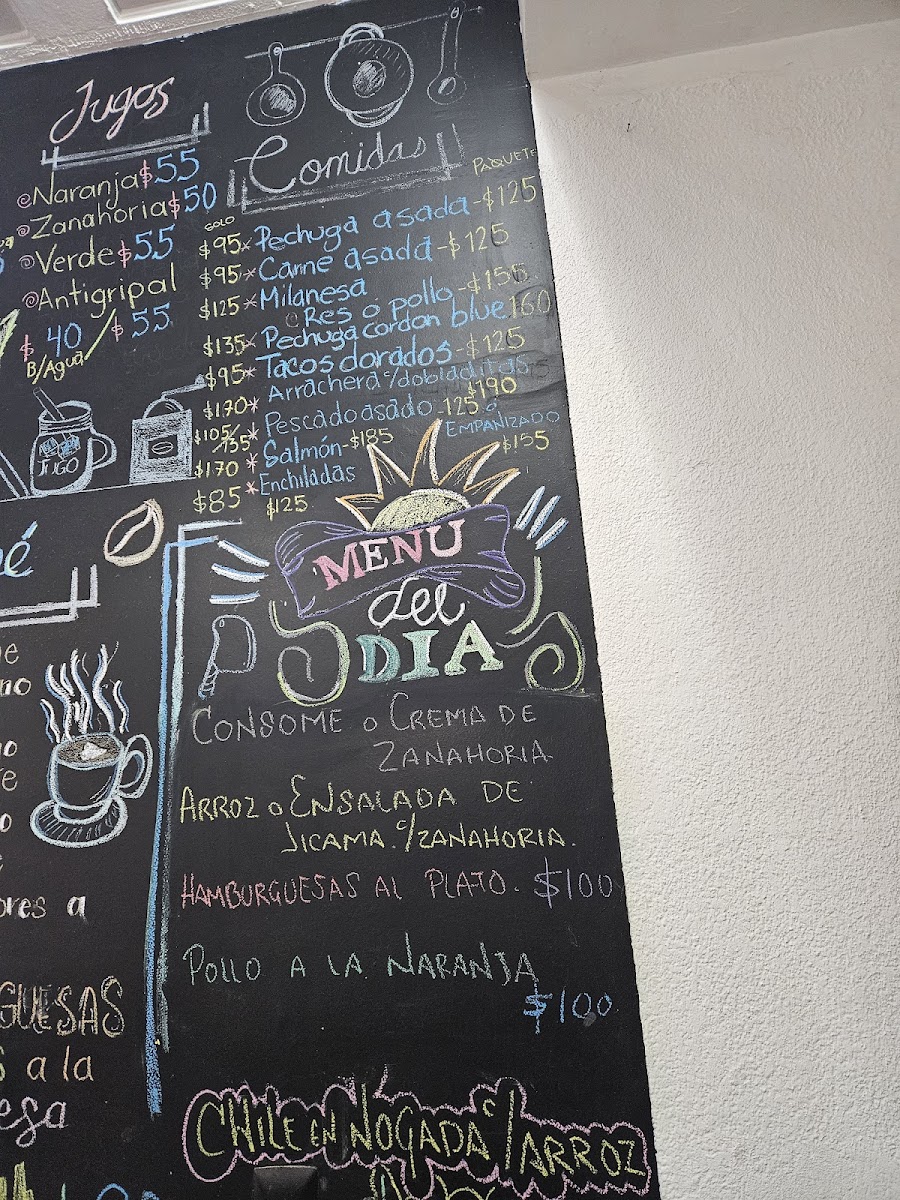 Jugos
Naranja $55
Zanahoria $50
Verde $55
Antigripal
$40 / $55
B/Agua
JUGO
Comidas
SOLO
PAQUETE
$95 * Pechuga asada - $125
$95 * Carne asada - $125
$125 * Milanesa
Res o pollo - $155
$135 * Pechuga cordon blue 160
$95 * Tacos dorados - $125
Arrachera c/dobladitas
$170 * $190
Pescado asado - 125 ó
EMPANIZADO
$105/135 * $155
Salmón - $185
$170 * Enchiladas
$85 * $125
MENU
del
DIA
CONSOME o CREMA DE
ZANAHORIA
ARROZ o ENSALADA DE
JICAMA c/ZANAHORIA.
HAMBURGUESAS AL PLATO. $100
POLLO A LA NARANJA
$100
CHILE EN NOGADA c/ARROZ
é
ores a
GUESAS
a la
esa